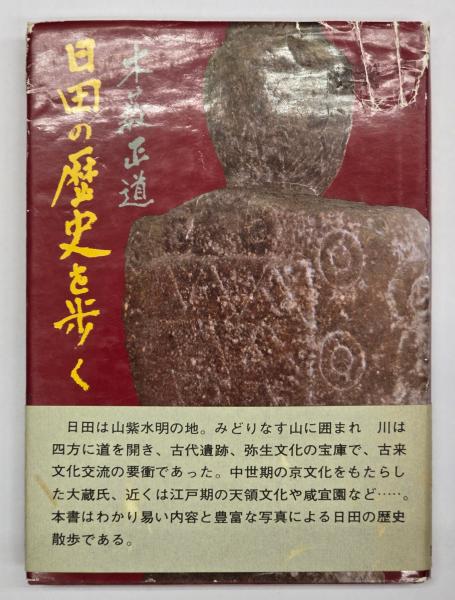 日田の歴史を歩く
木藪正道
日田は山紫水明の地。みどりなす山に囲まれ　川は
四方に道を開き、古代遺跡、弥生文化の宝庫で、古来
文化交流の要衝であった。中世期の京文化をもたらし
た大蔵氏、近くは江戸期の天領文化や咸宜園など……。
本書はわかり易い内容と豊富な写真による日田の歴史
散歩である。